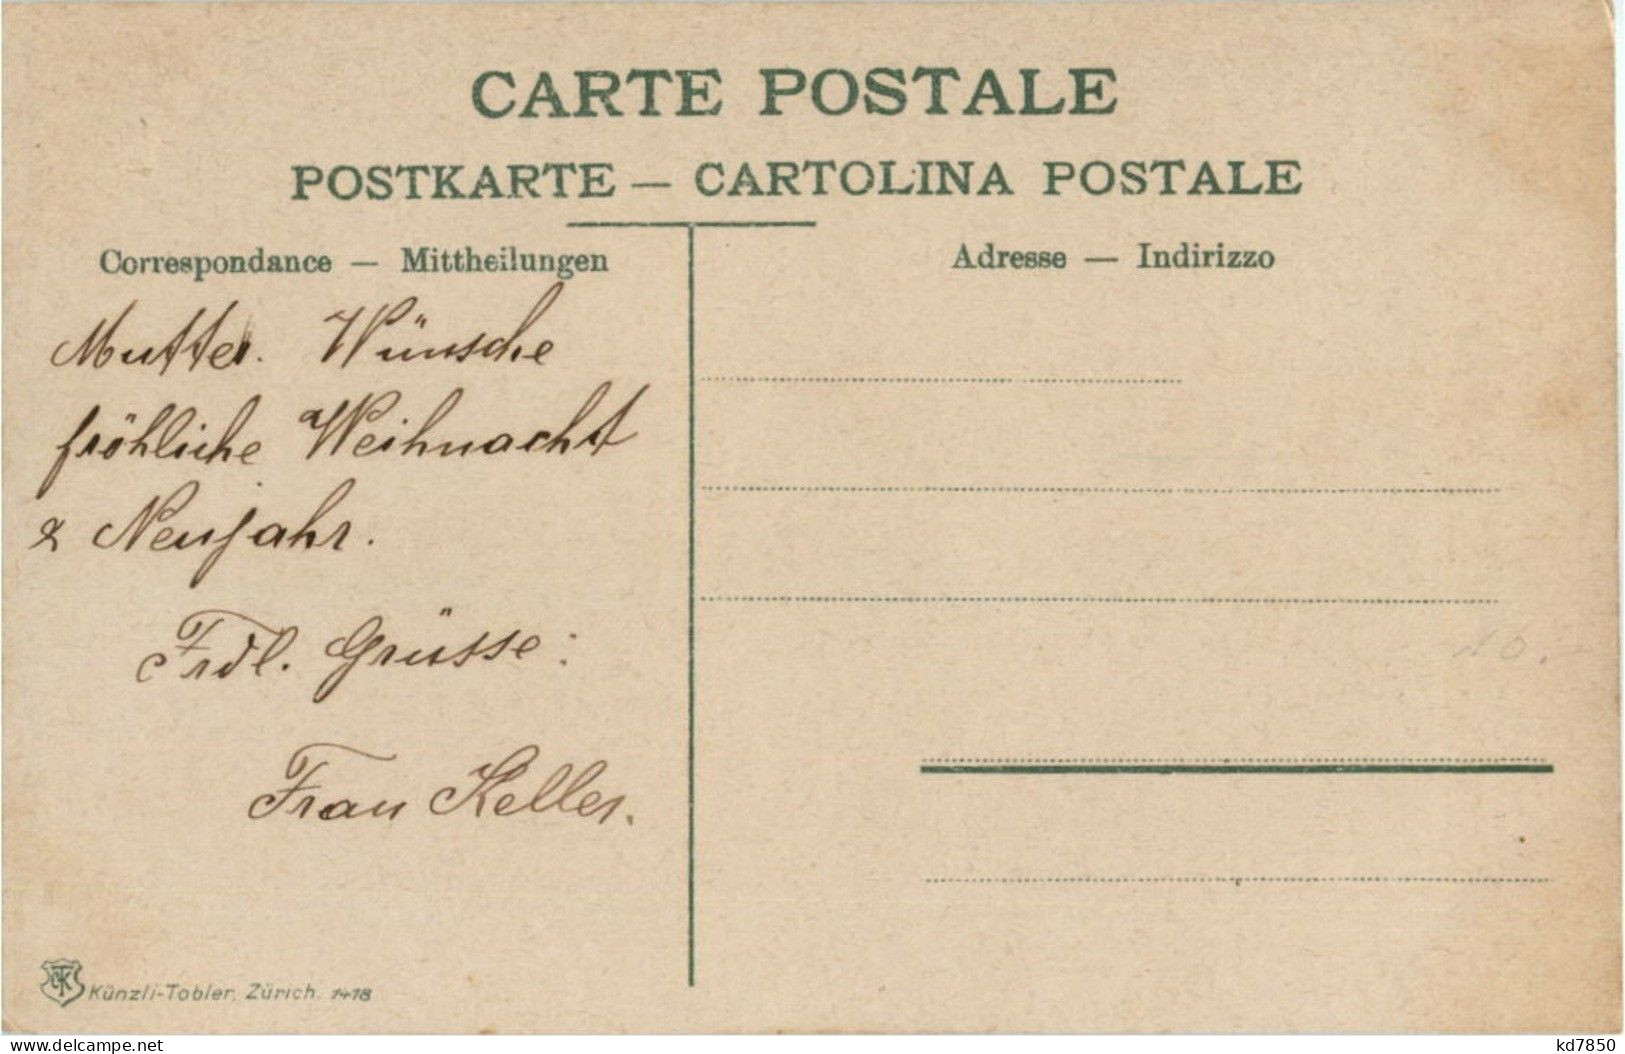 CARTE POSTALE
POSTKARTE — CARTOLINA POSTALE
Correspondance — Mittheilungen
Adresse — Indirizzo
Mutter. Wünsche
fröhliche Weihnacht
& Neujahr.
Frdl. Grüsse:
Frau Keller.
10.
Künzli-Tobler, Zürich. 1418
delcampe.net
kd7850